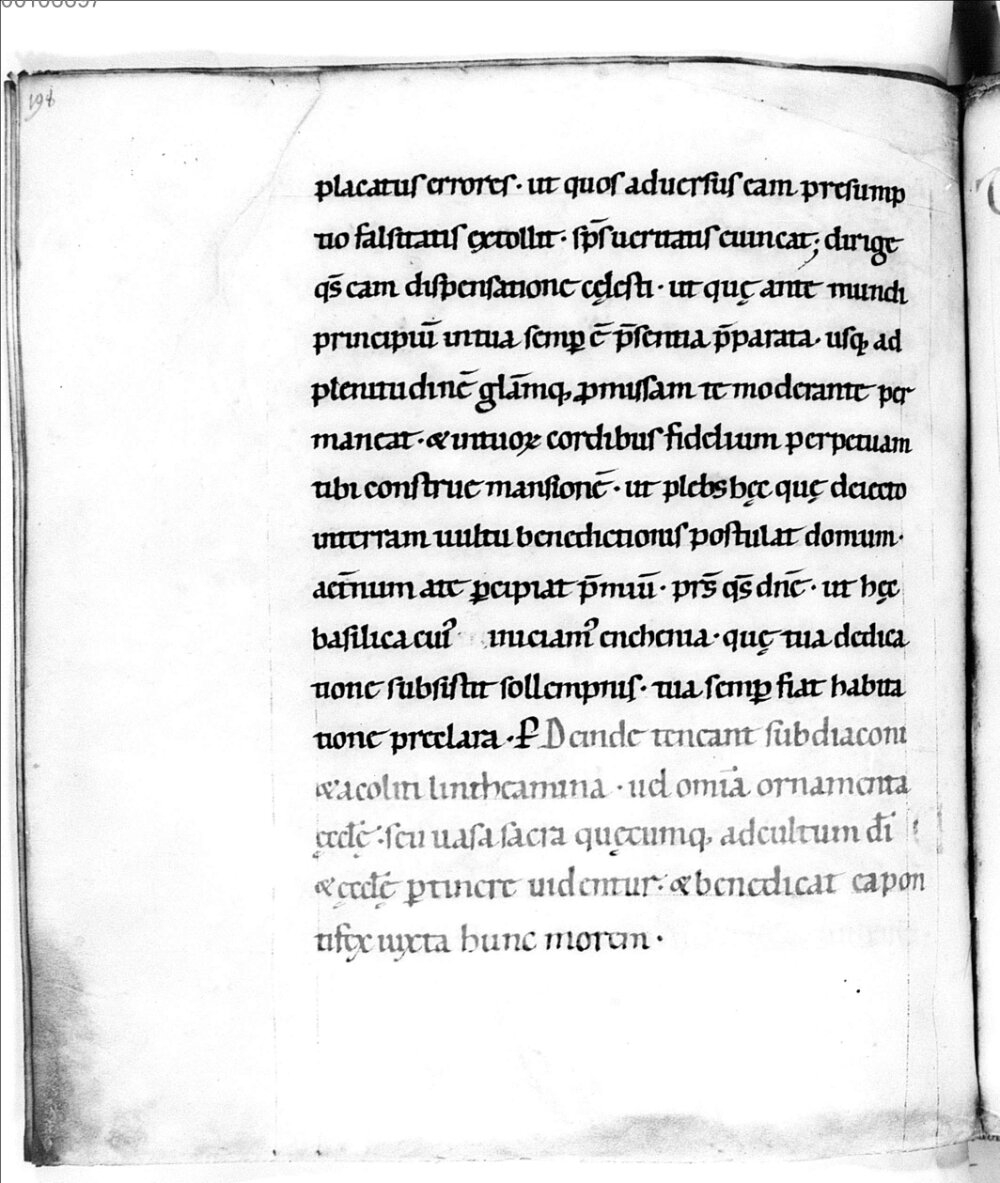 198
placatus errores · ut quos aduersus eam presump
tio falsitatis extollit · sp̄s ueritatis euincat ; dirige
qs̄ eam dispensatione cęlesti · ut quę ante mundi
principiū in tua semꝑ ē p̄sentia p̄parata · usq; ad
plenitudinē glām̄q; ꝓmissam te moderante per
maneat · & in tuoꝝ cordibus fidelium perpetuam
tibi construe mansionē · ut plebs hęc quę deiecto
in terram uultu benedictionis postulat domum ·
aet̄num a te ꝑcipiat p̄miū · prs̄ qs̄ dnē · ut hęc
basilica cui᾿ iniciam᾿ enchenia · quę tua dedica
tione subsistit sollempnis · tua semꝑ fiat habita
tione preclara · P̶ Deinde teneant subdiaconi
& acoliti lintheamina · uel om̄ia ornamenta
ęccłę · seu uasa sacra quęcumq; ad cultum dī
& ęccłę ꝑtinere uidentur · & benedicat ea pon
tifex iuxta hunc morem ·